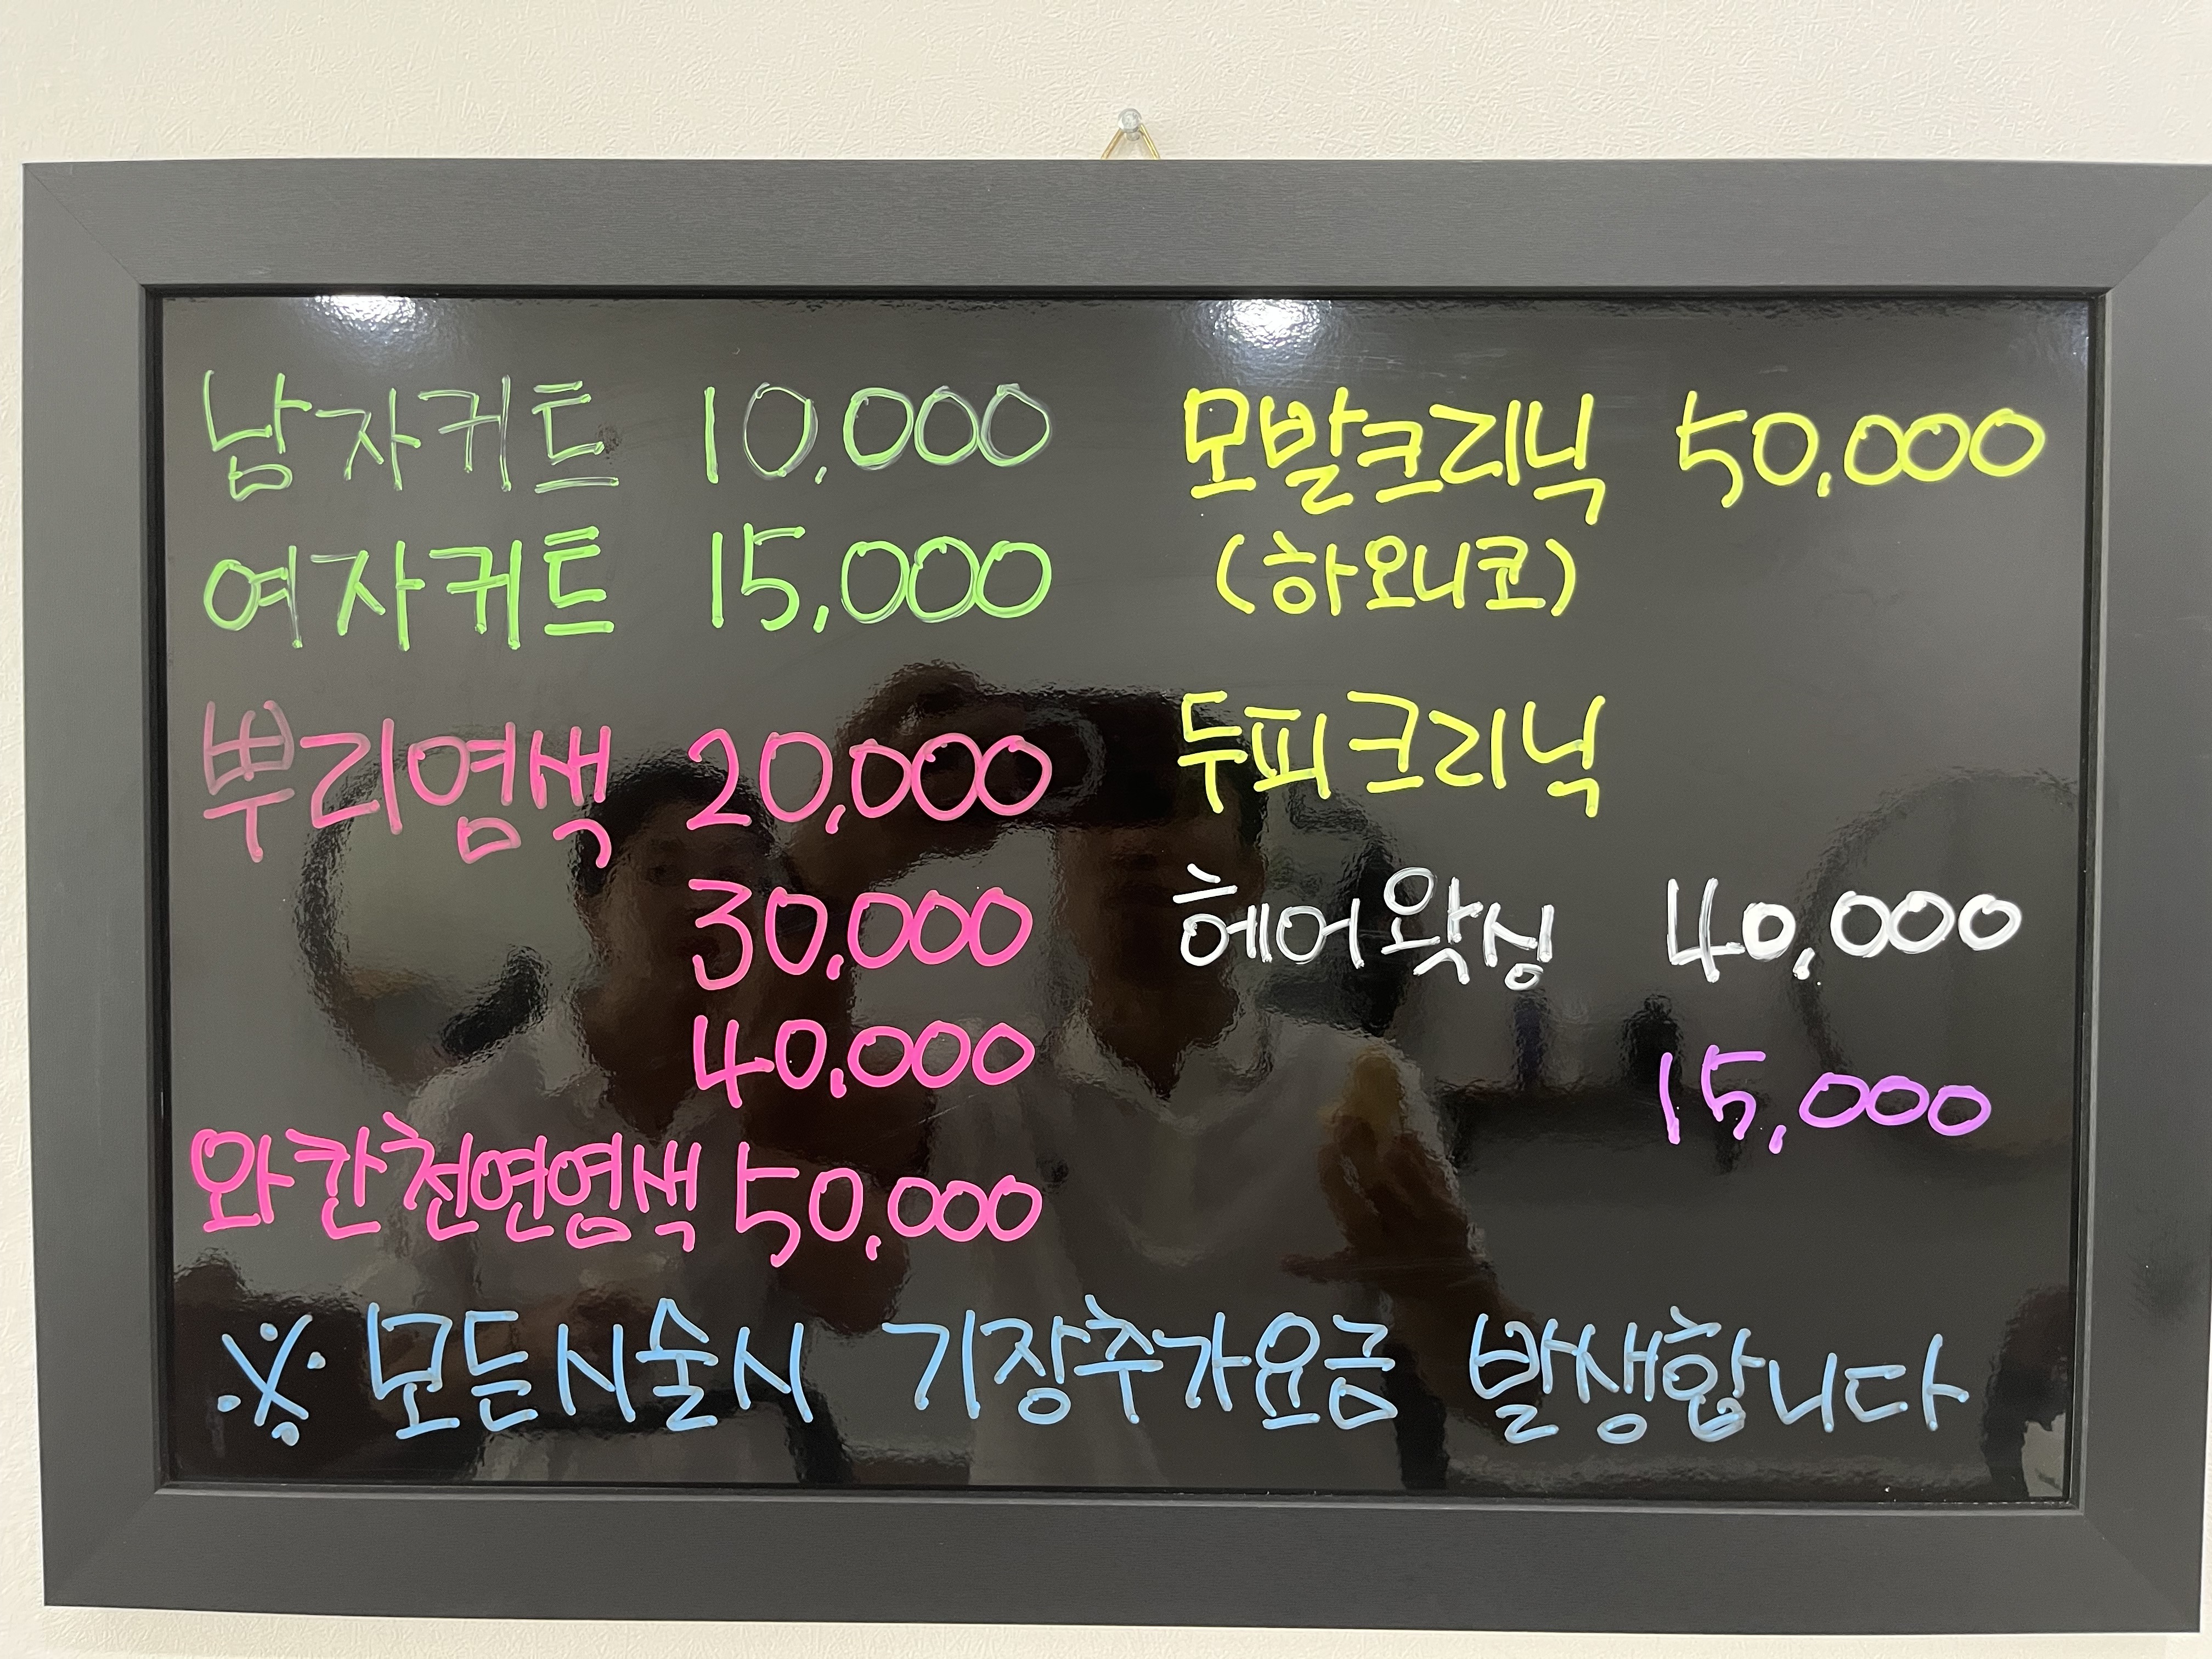 남자커트 10,000
여자커트 15,000
뿌리염색 20,000
30,000
40,000
와칸천연염색 50,000
모발크리닉 50,000
(하오니코)
두피크리닉
헤어왁싱 40,000
15,000
※ 모든시술시 기장추가요금 발생합니다